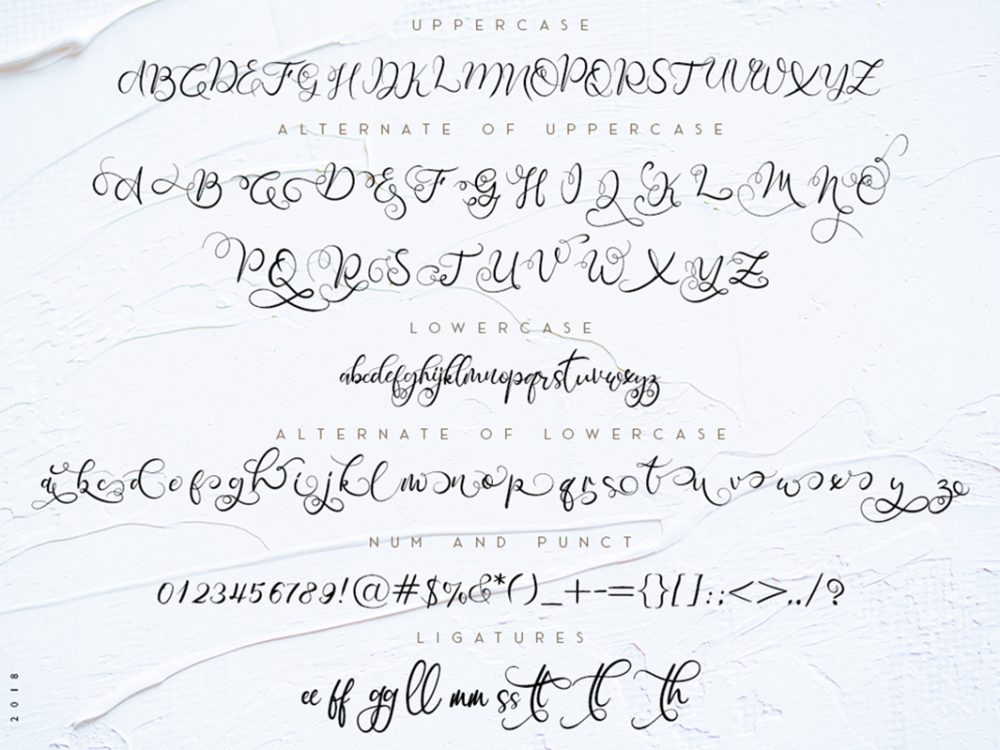 UPPERCASE
ABCDEFGHIJKLMNOPQRSTUVWXYZ
ALTERNATE OF UPPERCASE
A B C D E F G H I J K L M N O
P Q R S T U V W X Y Z
LOWERCASE
abcdefghijklmnopqrstuvwxyz
ALTERNATE OF LOWERCASE
a b c d e f g h i j k l m n o p q r s t u v w x y z
NUM AND PUNCT
0123456789!@#$%&*()_+-={}[]:;<>,./?
LIGATURES
ee ff gg ll mm ss tt tl th
2018